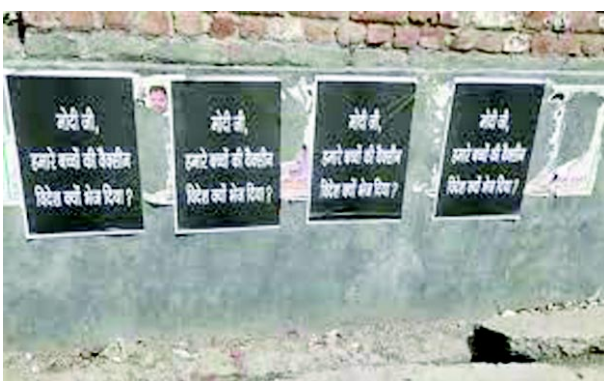 मोदी जी,
हमारे बच्चों की वैक्सीन
विदेश क्यों भेज दिया ?
मोदी जी,
हमारे बच्चों की वैक्सीन
विदेश क्यों भेज दिया ?
मोदी जी,
हमारे बच्चों की वैक्सीन
विदेश क्यों भेज दिया ?
मोदी जी,
हमारे बच्चों की वैक्सीन
विदेश क्यों भेज दिया ?